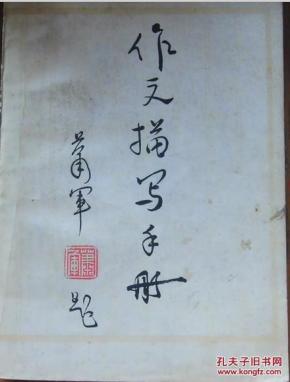 作文描写手册
萧军
萧军
题
孔夫子旧书网
kongfz.com